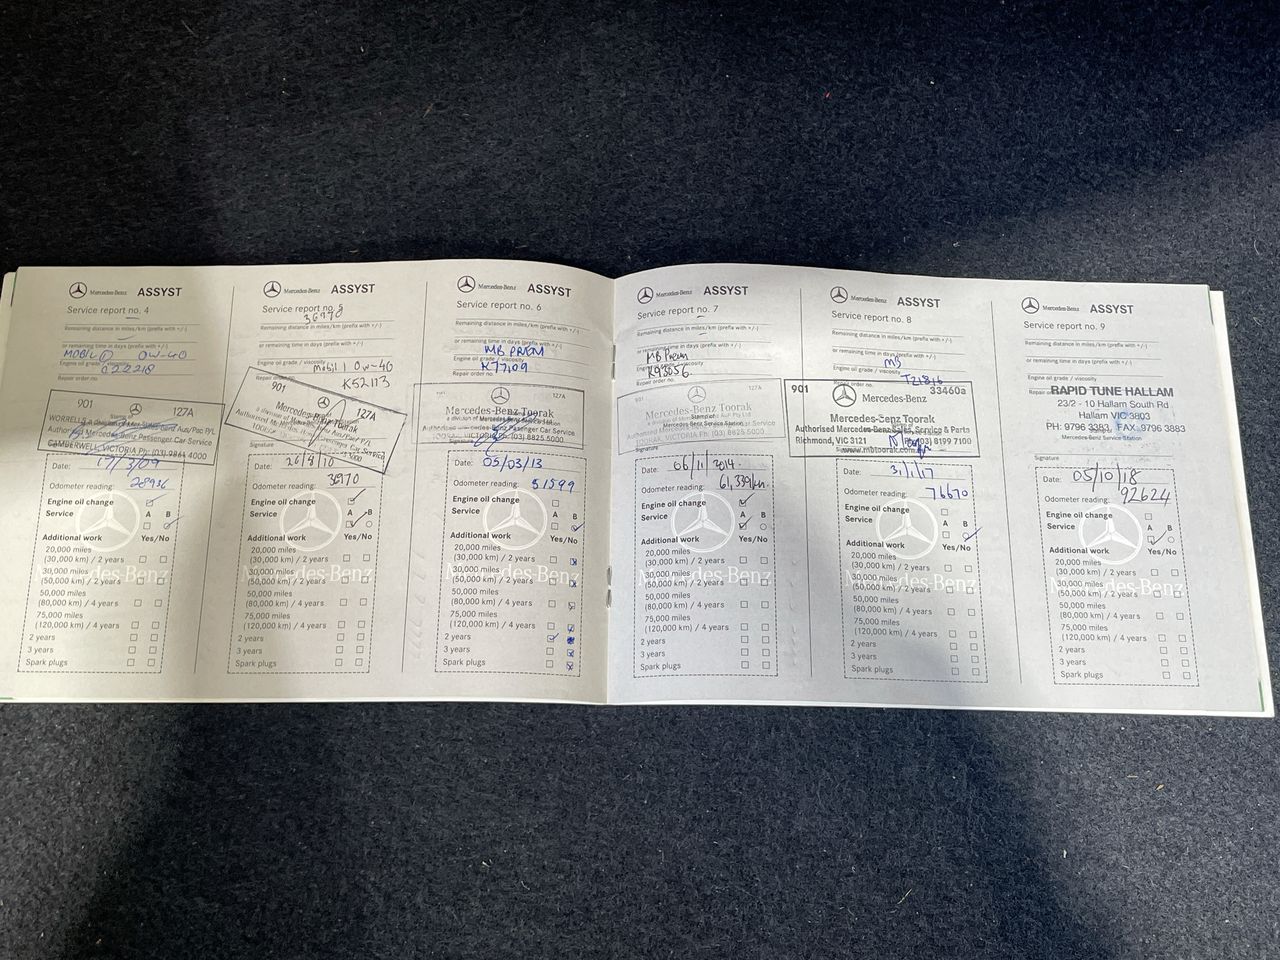 Mercedes-Benz ASSYST
Service report no. 4
Remaining distance in miles/km (prefix with +/-)
or remaining time in days (prefix with +/-)
MOBIL 1 0W-40
Engine oil grade / viscosity
C22218
Repair order no.
901 127A
Authorised Mercedes-Benz Passenger Car Service
CAMBERWELL, VICTORIA Ph: (03) 9861 4000
Date: 17/3/09
Odometer reading: 28936
Engine oil change
A B
Service
Additional work Yes/No
20,000 miles
(30,000 km) / 2 years
30,000 miles
(50,000 km) / 2 years
50,000 miles
(80,000 km) / 4 years
75,000 miles
(120,000 km) / 4 years
2 years
3 years
Spark plugs
Mercedes-Benz ASSYST
Service report no. 5
Remaining distance in miles/km (prefix with +/-)
or remaining time in days (prefix with +/-)
Mobil 1 0w-40
Engine oil grade / viscosity
K52113
Repair order no.
901 127A
Mercedes-Benz
Signature
Date: 26/8/10
Odometer reading: 38970
Engine oil change
A B
Service
Additional work Yes/No
20,000 miles
(30,000 km) / 2 years
30,000 miles
(50,000 km) / 2 years
50,000 miles
(80,000 km) / 4 years
75,000 miles
(120,000 km) / 4 years
2 years
3 years
Spark plugs
Mercedes-Benz ASSYST
Service report no. 6
Remaining distance in miles/km (prefix with +/-)
or remaining time in days (prefix with +/-)
MB PREM
Engine oil grade / viscosity
K77109
Repair order no.
127A
Mercedes-Benz Toorak
VICTORIA Ph: (03) 8825 5000
Signature
Date: 05/03/13
Odometer reading: 51599
Engine oil change
A B
Service
Additional work Yes/No
20,000 miles
(30,000 km) / 2 years
30,000 miles
(50,000 km) / 2 years
50,000 miles
(80,000 km) / 4 years
75,000 miles
(120,000 km) / 4 years
2 years
3 years
Spark plugs
Mercedes-Benz ASSYST
Service report no. 7
Remaining distance in miles/km (prefix with +/-)
or remaining time in days (prefix with +/-)
MB Prem
Engine oil grade / viscosity
K93056
Repair order no.
901 127A
Mercedes-Benz Toorak
Mercedes-Benz Service Station
TOORAK, VICTORIA Ph: (03) 8825 5000
Signature
Date: 06/11/2014
Odometer reading: 61,339km
Engine oil change
A B
Service
Additional work Yes/No
20,000 miles
(30,000 km) / 2 years
30,000 miles
(50,000 km) / 2 years
50,000 miles
(80,000 km) / 4 years
75,000 miles
(120,000 km) / 4 years
2 years
3 years
Spark plugs
Mercedes-Benz ASSYST
Service report no. 8
Remaining distance in miles/km (prefix with +/-)
or remaining time in days (prefix with +/-)
MB
Engine oil grade / viscosity
T21816
Repair order no.
901 33460a
Mercedes-Benz
Mercedes-Benz Toorak
Authorised Mercedes-Benz Sales, Service & Parts
Richmond, VIC 3121 Ph (03) 8199 7100
www.mbtoorak.com.au
Date: 31/1/17
Odometer reading: 76670
Engine oil change
A B
Service
Additional work Yes/No
20,000 miles
(30,000 km) / 2 years
30,000 miles
(50,000 km) / 2 years
50,000 miles
(80,000 km) / 4 years
75,000 miles
(120,000 km) / 4 years
2 years
3 years
Spark plugs
Mercedes-Benz ASSYST
Service report no. 9
Remaining distance in miles/km (prefix with +/-)
or remaining time in days (prefix with +/-)
Engine oil grade / viscosity
Repair order no.
RAPID TUNE HALLAM
23/2 - 10 Hallam South Rd
Hallam VIC 3803
PH: 9796 3383 FAX 9796 3883
Mercedes-Benz Service Station
Signature
Date: 05/10/18
Odometer reading: 92624
Engine oil change
A B
Service
Additional work Yes/No
20,000 miles
(30,000 km) / 2 years
30,000 miles
(50,000 km) / 2 years
50,000 miles
(80,000 km) / 4 years
75,000 miles
(120,000 km) / 4 years
2 years
3 years
Spark plugs